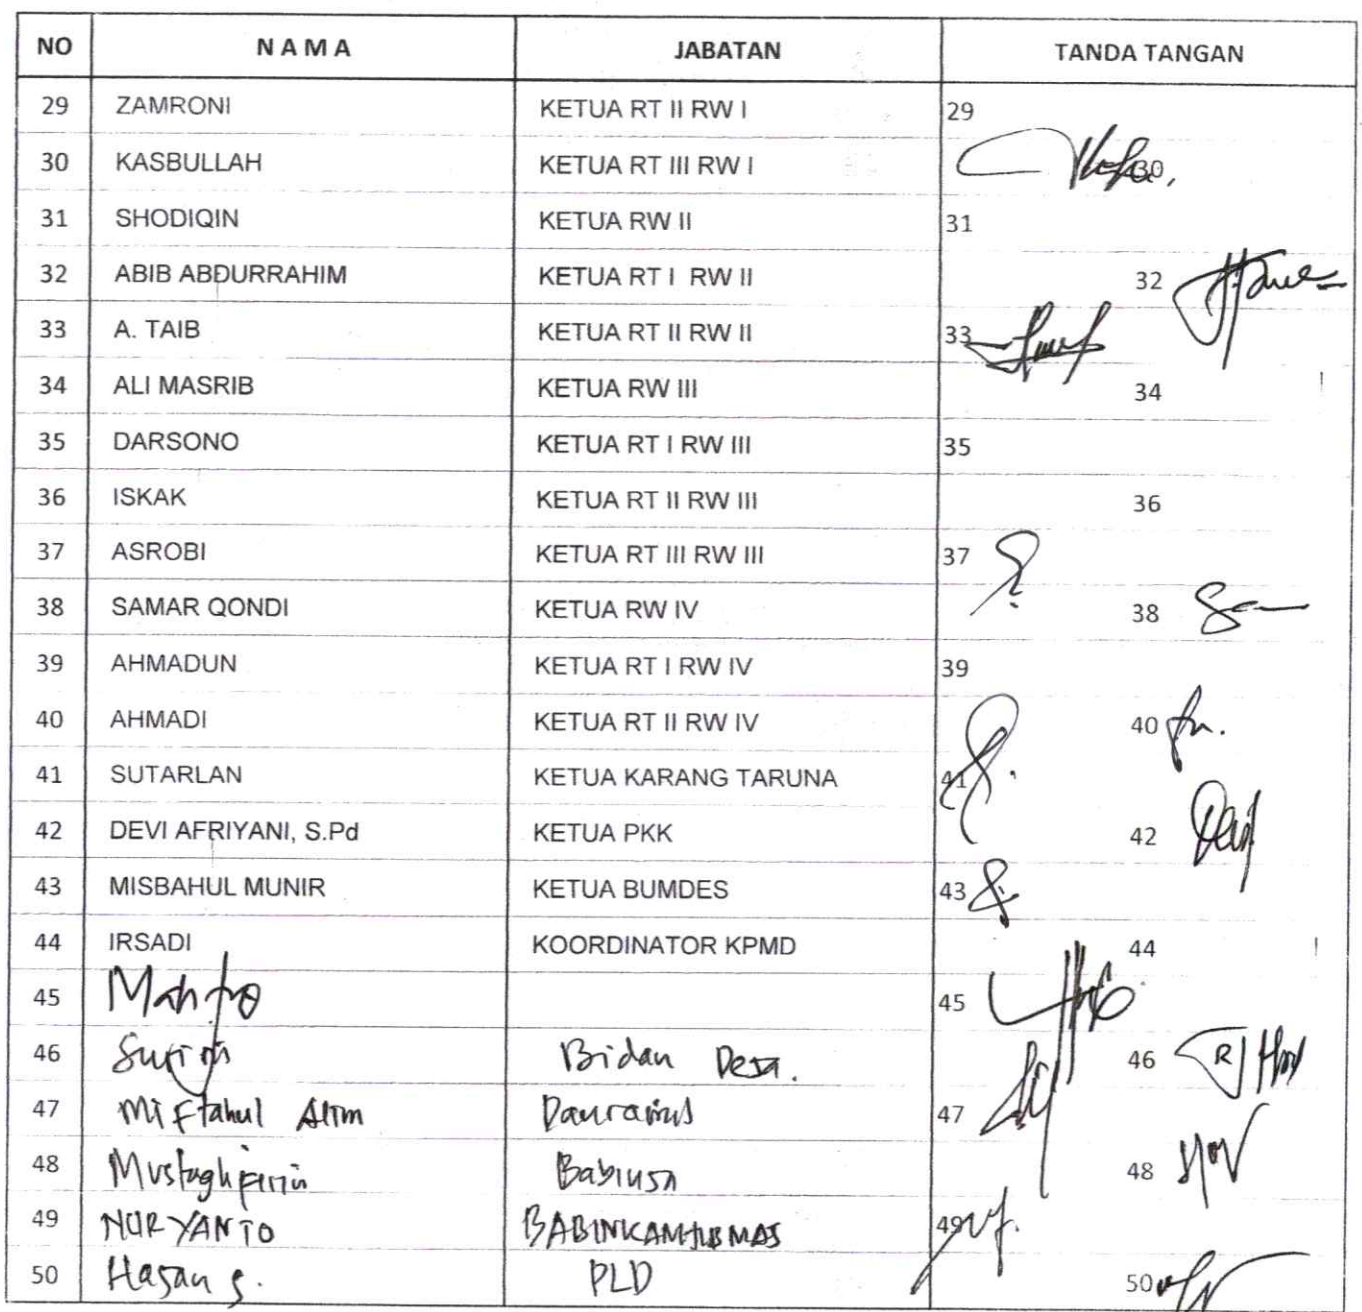 NO NAMA JABATAN TANDA TANGAN
29 ZAMRONI KETUA RT II RW I 29
30 KASBULLAH KETUA RT III RW I 30
31 SHODIQIN KETUA RW II 31
32 ABIB ABDURRAHIM KETUA RT I RW II 32
33 A. TAIB KETUA RT II RW II 33
34 ALI MASRIB KETUA RW III 34
35 DARSONO KETUA RT I RW III 35
36 ISKAK KETUA RT II RW III 36
37 ASROBI KETUA RT III RW III 37
38 SAMAR QONDI KETUA RW IV 38
39 AHMADUN KETUA RT I RW IV 39
40 AHMADI KETUA RT II RW IV 40
41 SUTARLAN KETUA KARANG TARUNA 41
42 DEVI AFRIYANI, S.Pd KETUA PKK 42
43 MISBAHUL MUNIR KETUA BUMDES 43
44 IRSADI KOORDINATOR KPMD 44
45 45
46 Bidan Desa. 46
47 Miftahul Alim 47
48 Mustaghfirin Babinsa 48
49 NURYANTO BABINKAMTIBMAS 49
50 Hasan S. PLD 50